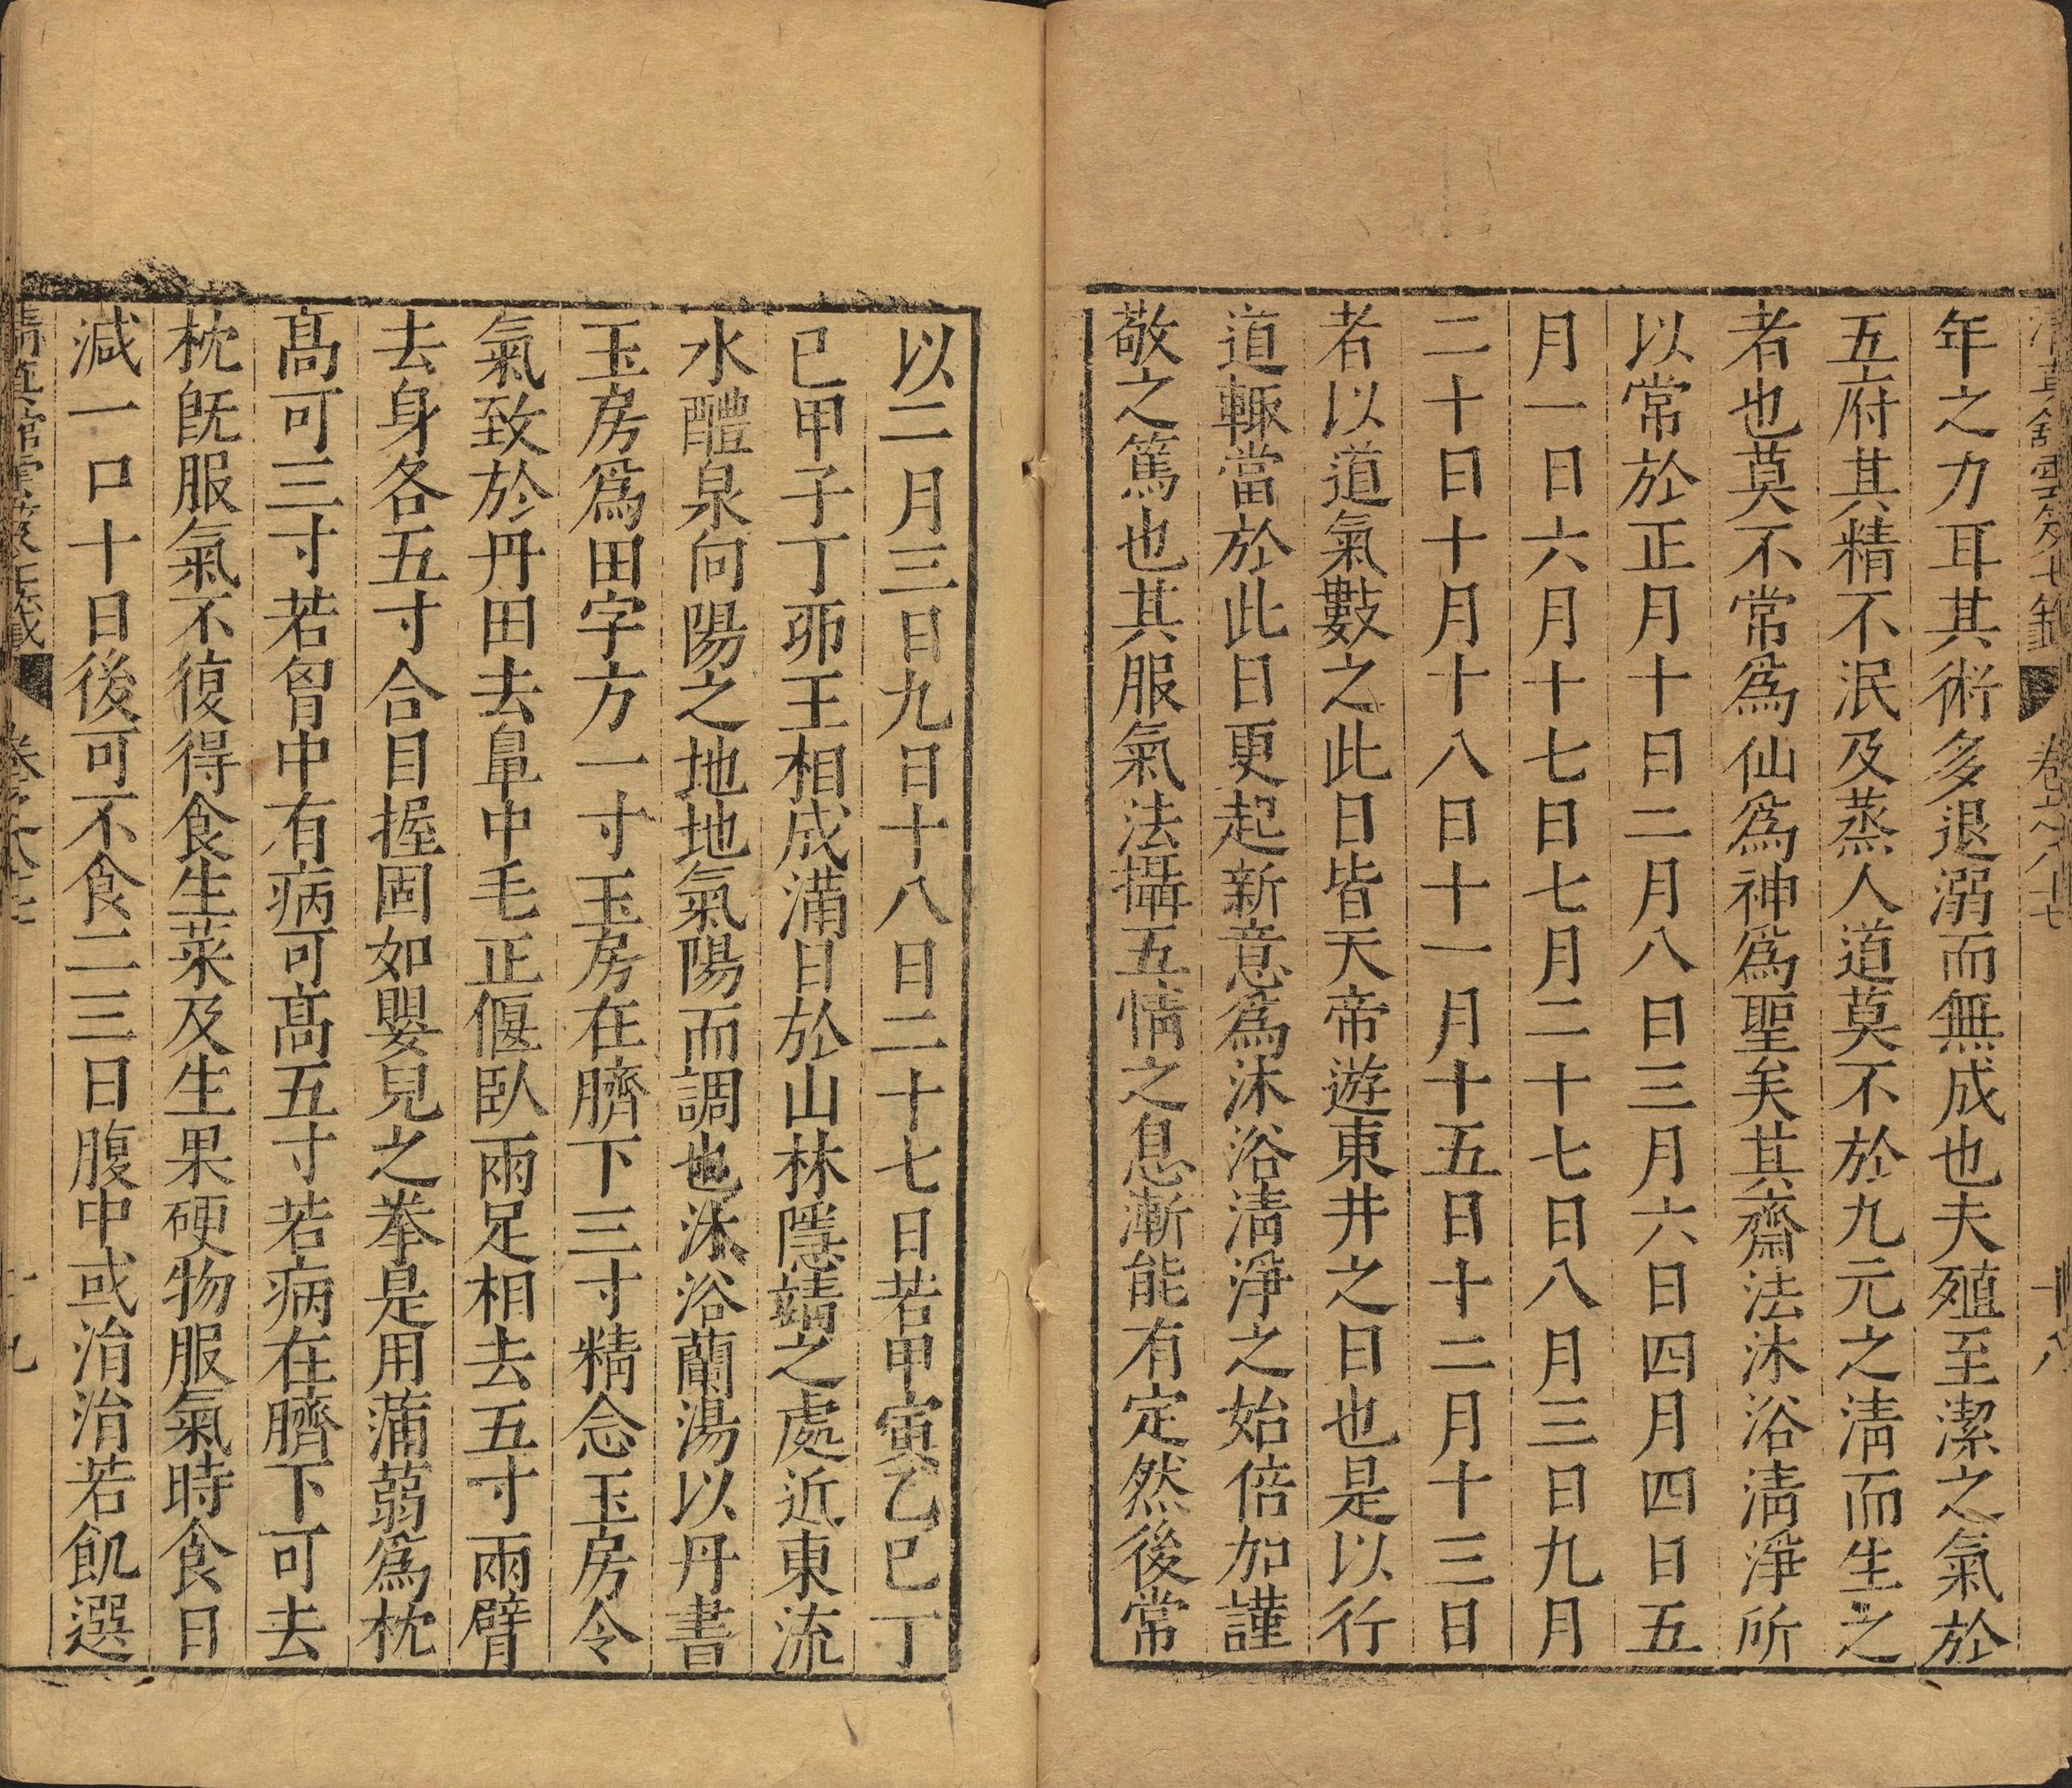 年之力耳其術多退溺而無成也夫殖至潔之氣於
五府其精不泯及蒸人道莫不於九元之清而生之
者也莫不常爲仙爲神爲聖矣其齋法沐浴清淨所
以常於正月十日二月八日三月六日四月四日五
月一日六月十七日七月二十七日八月三日九月
二十日十月十八日十一月十五日十二月十三日
者以道氣數之此日皆天帝遊東井之日也是以行
道輒當於此日更起新意爲沐浴清淨之始倍加謹
敬之篤也其服氣法攝五情之息漸能有定然後常
以二月三日九日十八日二十七日若甲寅乙巳丁
巳甲子丁卯王相成滿日於山林隱靖之處近東流
水醴泉向陽之地地氣陽而調也沐浴蘭湯以丹書
玉房爲田字方一寸玉房在臍下三寸精念玉房令
氣致於丹田去鼻中毛正偃臥兩足相去五寸兩臂
去身各五寸合目握固如嬰兒之拳是用蒲蒻爲枕
高可三寸若胷中有病可高五寸若病在臍下可去
枕既服氣不復得食生菜及生果硬物服氣時食日
減一口十日後可不食二三日腹中或㳙㳙若飢選